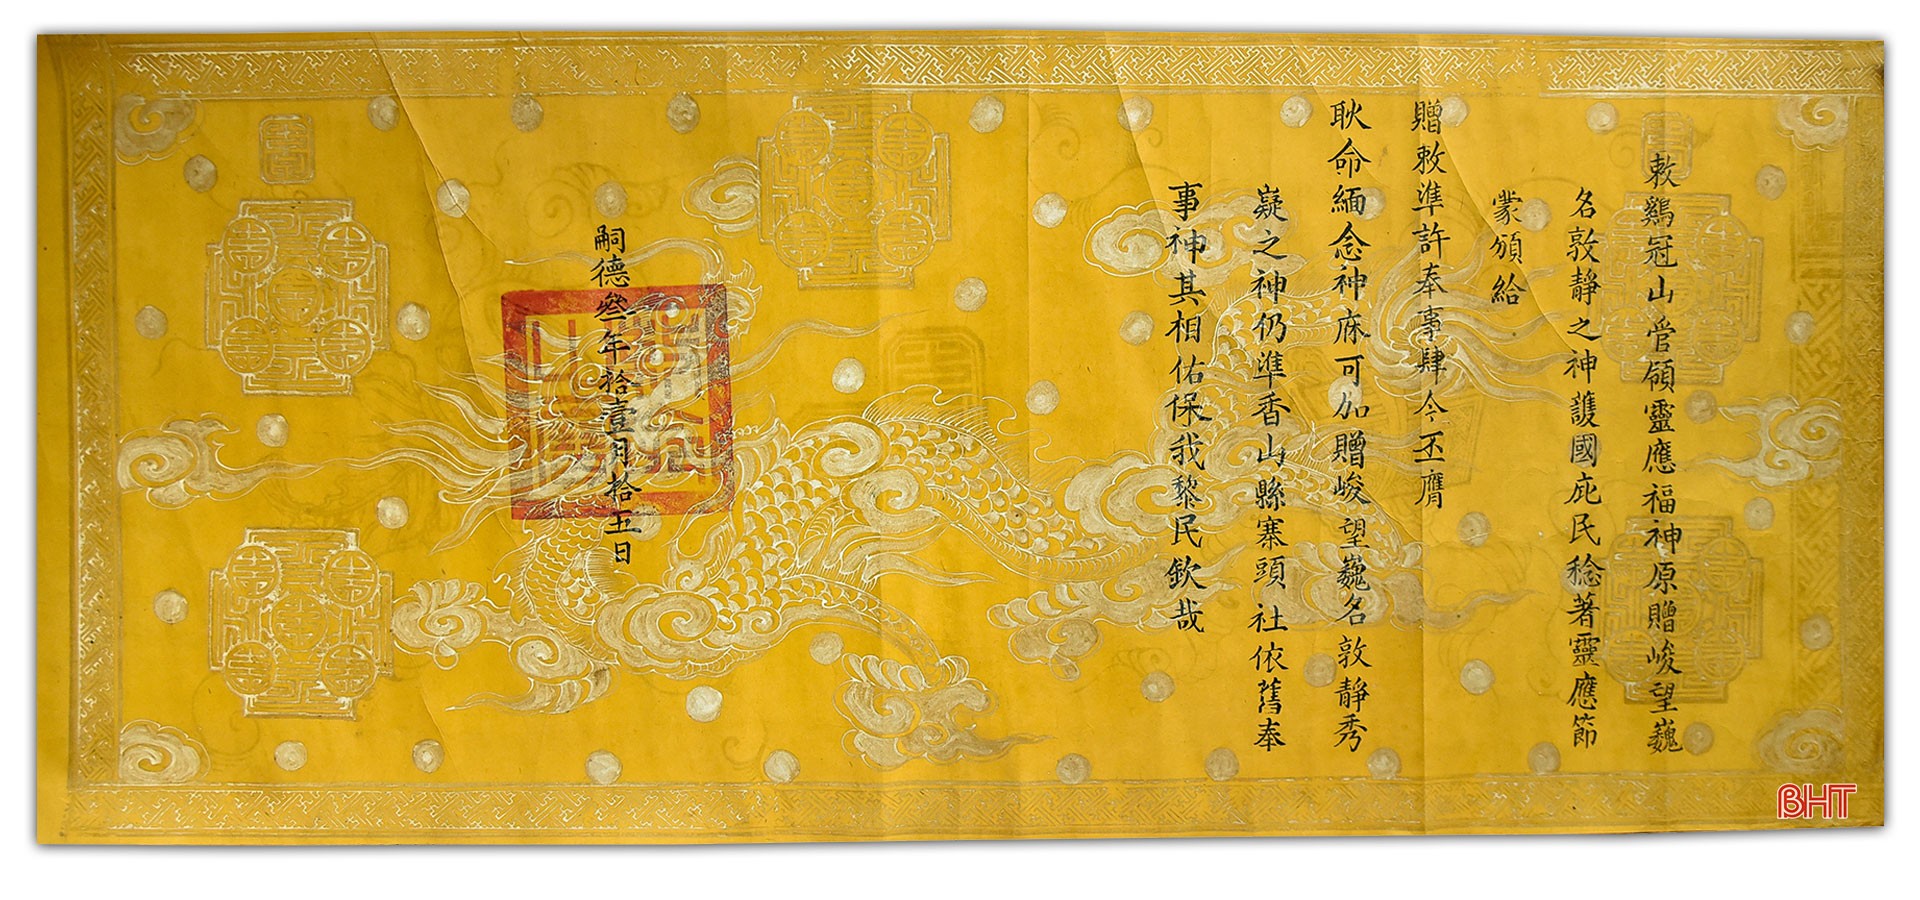 敕鷄冠山管領靈應福神原贈峻望巍
名敦靜之神護國庇民稔著靈應節
蒙頒給
贈敕準許奉事肆今丕膺
耿命緬念神庥可加贈峻望巍名敦靜秀
嶷之神仍準香山縣寨頭社依舊奉
事神其相佑保我黎民欽哉
嗣德叁年拾壹月拾五日
BHT